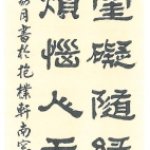 罣礙隨緣
煩惱心
月書於抱樸軒南窗